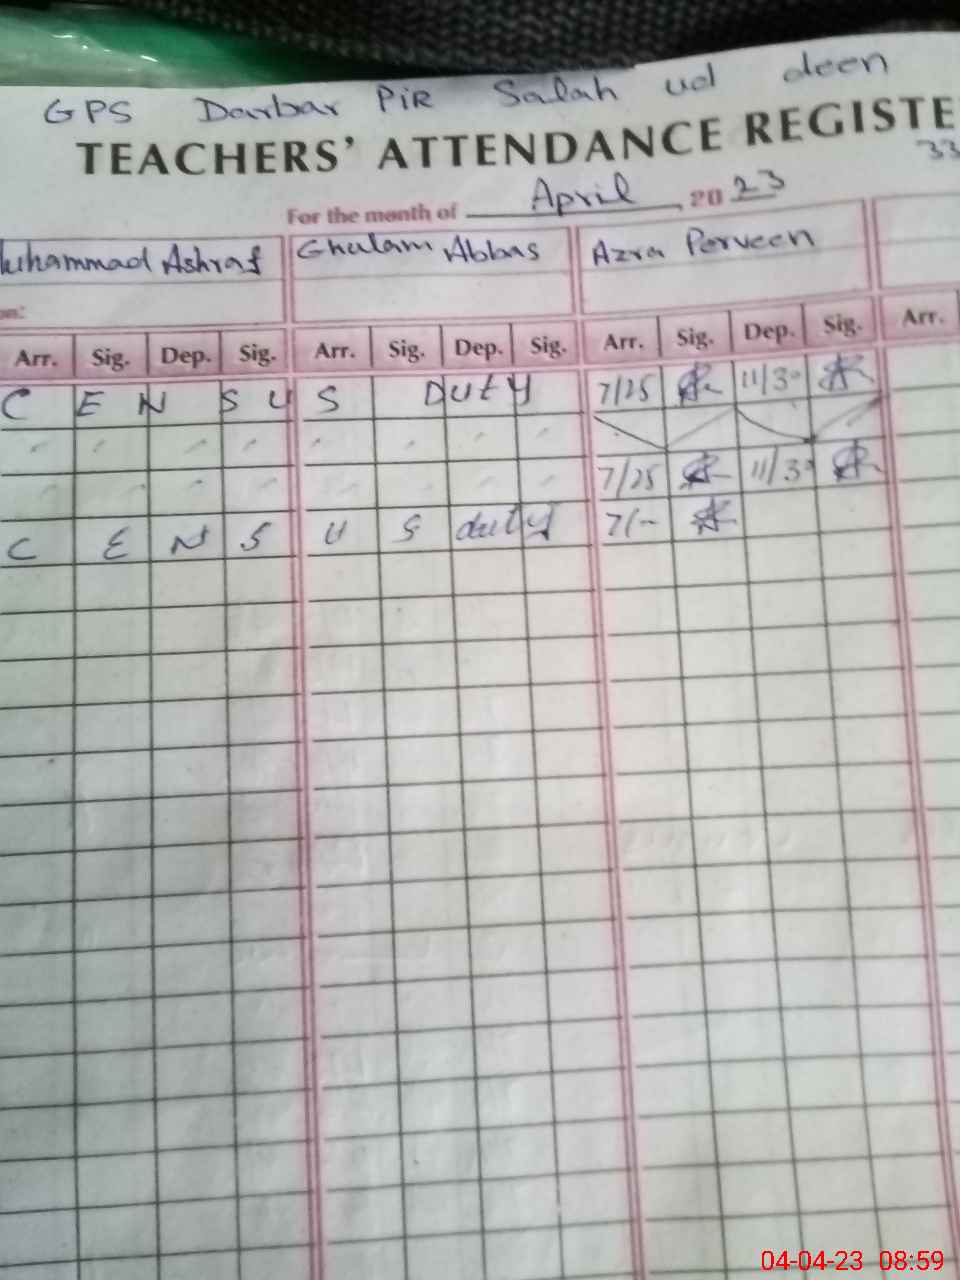 GPS Darbar PIR Salah ud deen
TEACHERS' ATTENDANCE REGISTE
33
For the month of April, 2023
uhammad Ashraf Ghulam Abbas Azra Perveen
on:
Arr. Sig. Dep. Sig. Arr. Sig. Dep. Sig. Arr. Sig. Dep. Sig. Arr.
C E N S U S Duty 7/25 11/30
7/25 11/30
C E N S U S duty 7/-
04-04-23 08:59